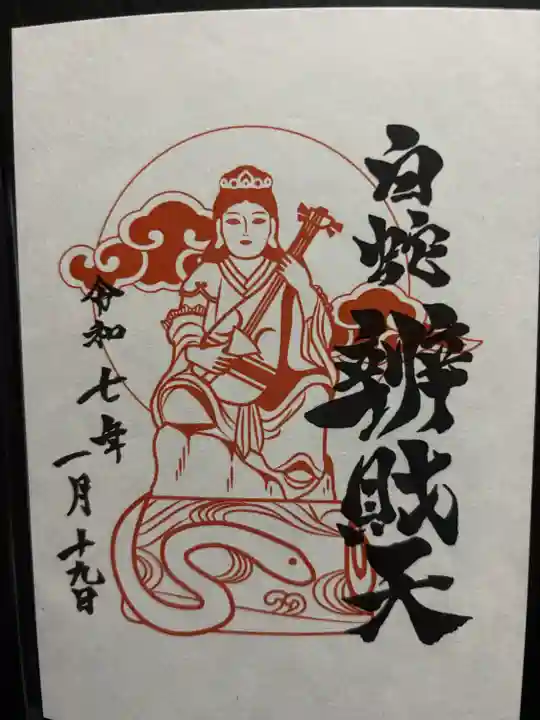 白蛇辨財天
令和七年一月十九日